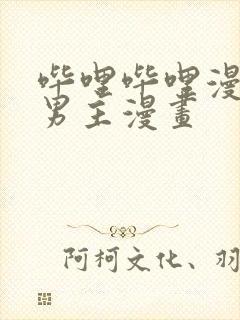 哔哩哔哩漫
男主漫畫
阿柯文化、羽